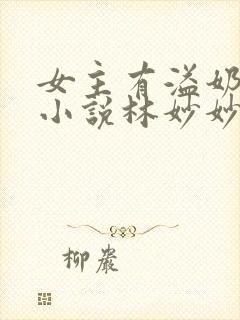 女主有溢奶
小说林妙妙
柳岩